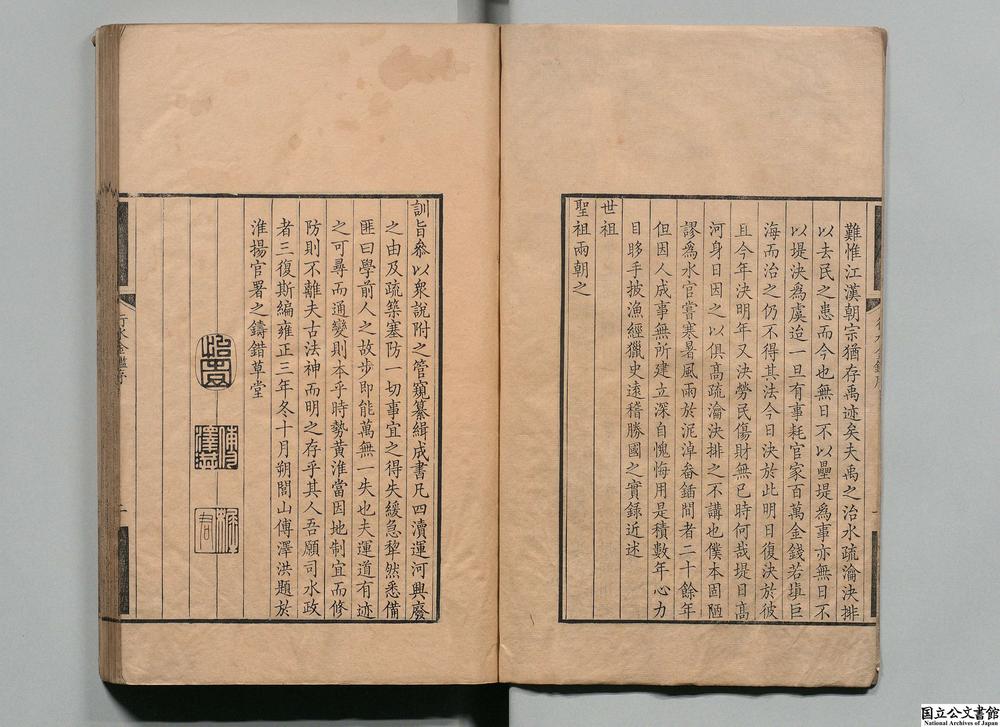 難惟江漢朝宗猶存禹迹矣夫禹之治水疏瀹決排
以去民之患而今也無日不以壘堤為事亦無日不
以堤決為虞迨一旦有事耗官家百萬金錢若塡巨
海而治之仍不得其法今日決於此明日復決於彼
且今年決明年又決勞民傷財無已時何哉堤日高
河身日因之以俱高疏瀹決排之不講也僕本固陋
謬爲水官嘗寒暑風雨於泥淖畚鍤間者二十餘年
但因人成事無所建立深自愧悔用是積數年心力
目眵手披漁經獵史遠稽勝國之實錄近述
世祖
聖祖兩朝之
訓旨叅以衆說附之管窺纂緝成書凡四瀆運河興廢
之由及疏築塞防一切事宜之得失緩急犂然悉備
匪曰學前人之故步即能萬無一失也夫運道有迹
之可尋而通變則本乎時勢黃淮當因地制宜而修
防則不離夫古法神而明之存乎其人吾願司水政
者三復斯編雍正三年冬十月朔閭山傅澤洪題於
淮揚官署之鑄錯草堂
傅澤洪
行水金鑑序
二
国立公文書館
National Archives of Japan